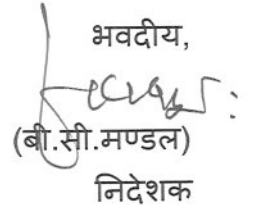 भवदीय,
(बी.सी.मण्डल)
निदेशक